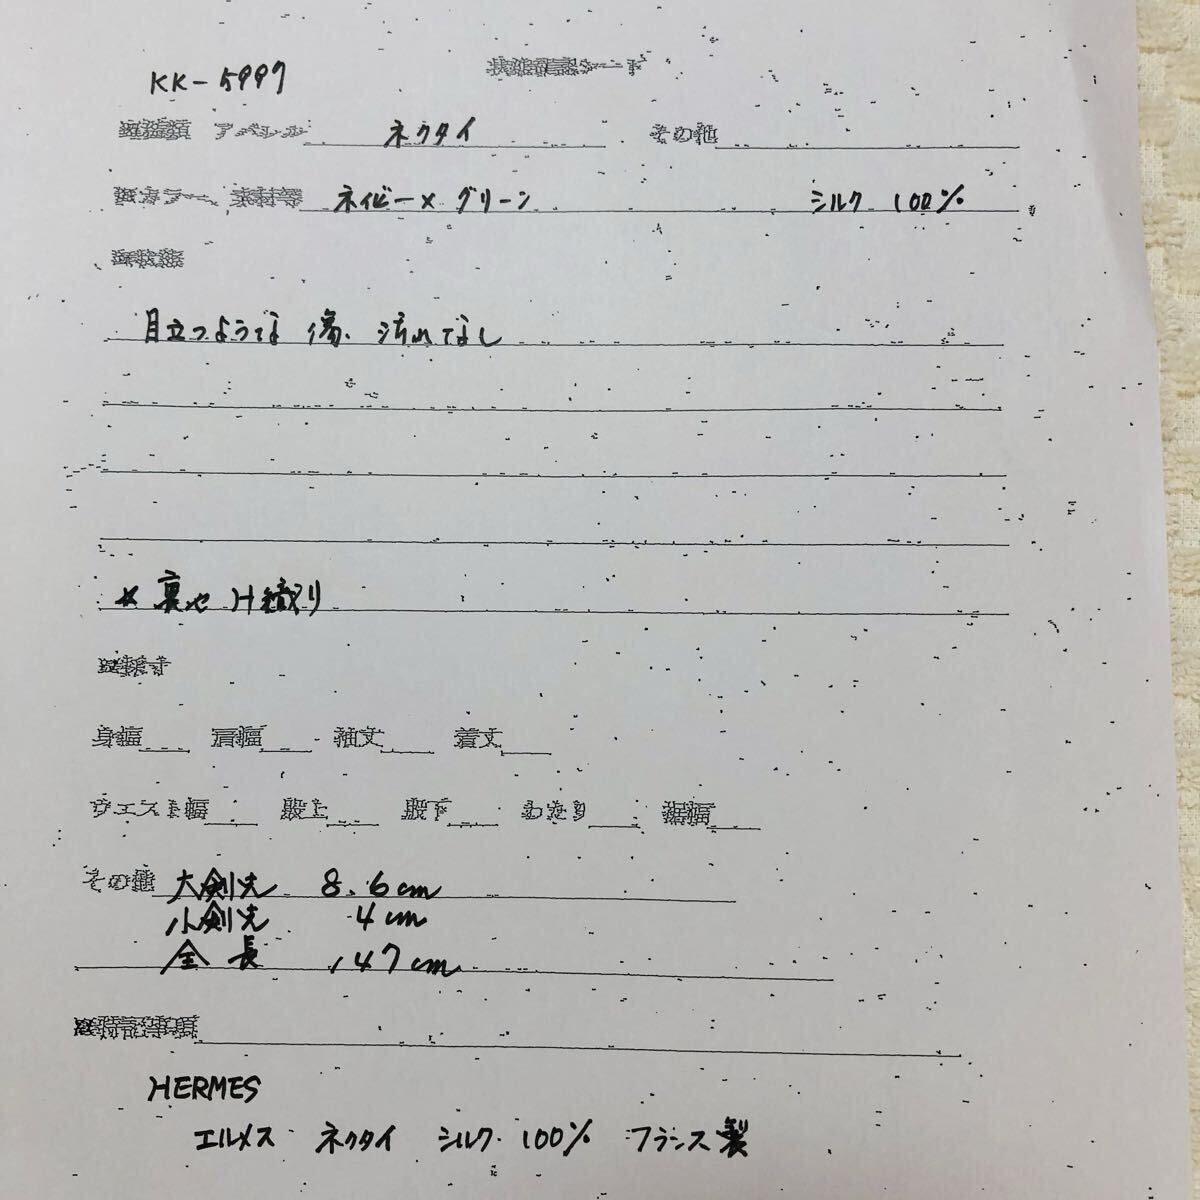 KK-5997
状態確認シート
アパレル ネクタイ その他
カラー、素材等 ネイビー×グリーン シルク 100%
目立つような 傷、汚れなし
裏地 H織り
身幅 肩幅 袖丈 着丈
ウエスト幅 股上 股下 わたり 裾幅
その他 大剣先 8.6cm
小剣先 4cm
全長 147cm
特記事項
HERMES
エルメス ネクタイ シルク 100% フランス製